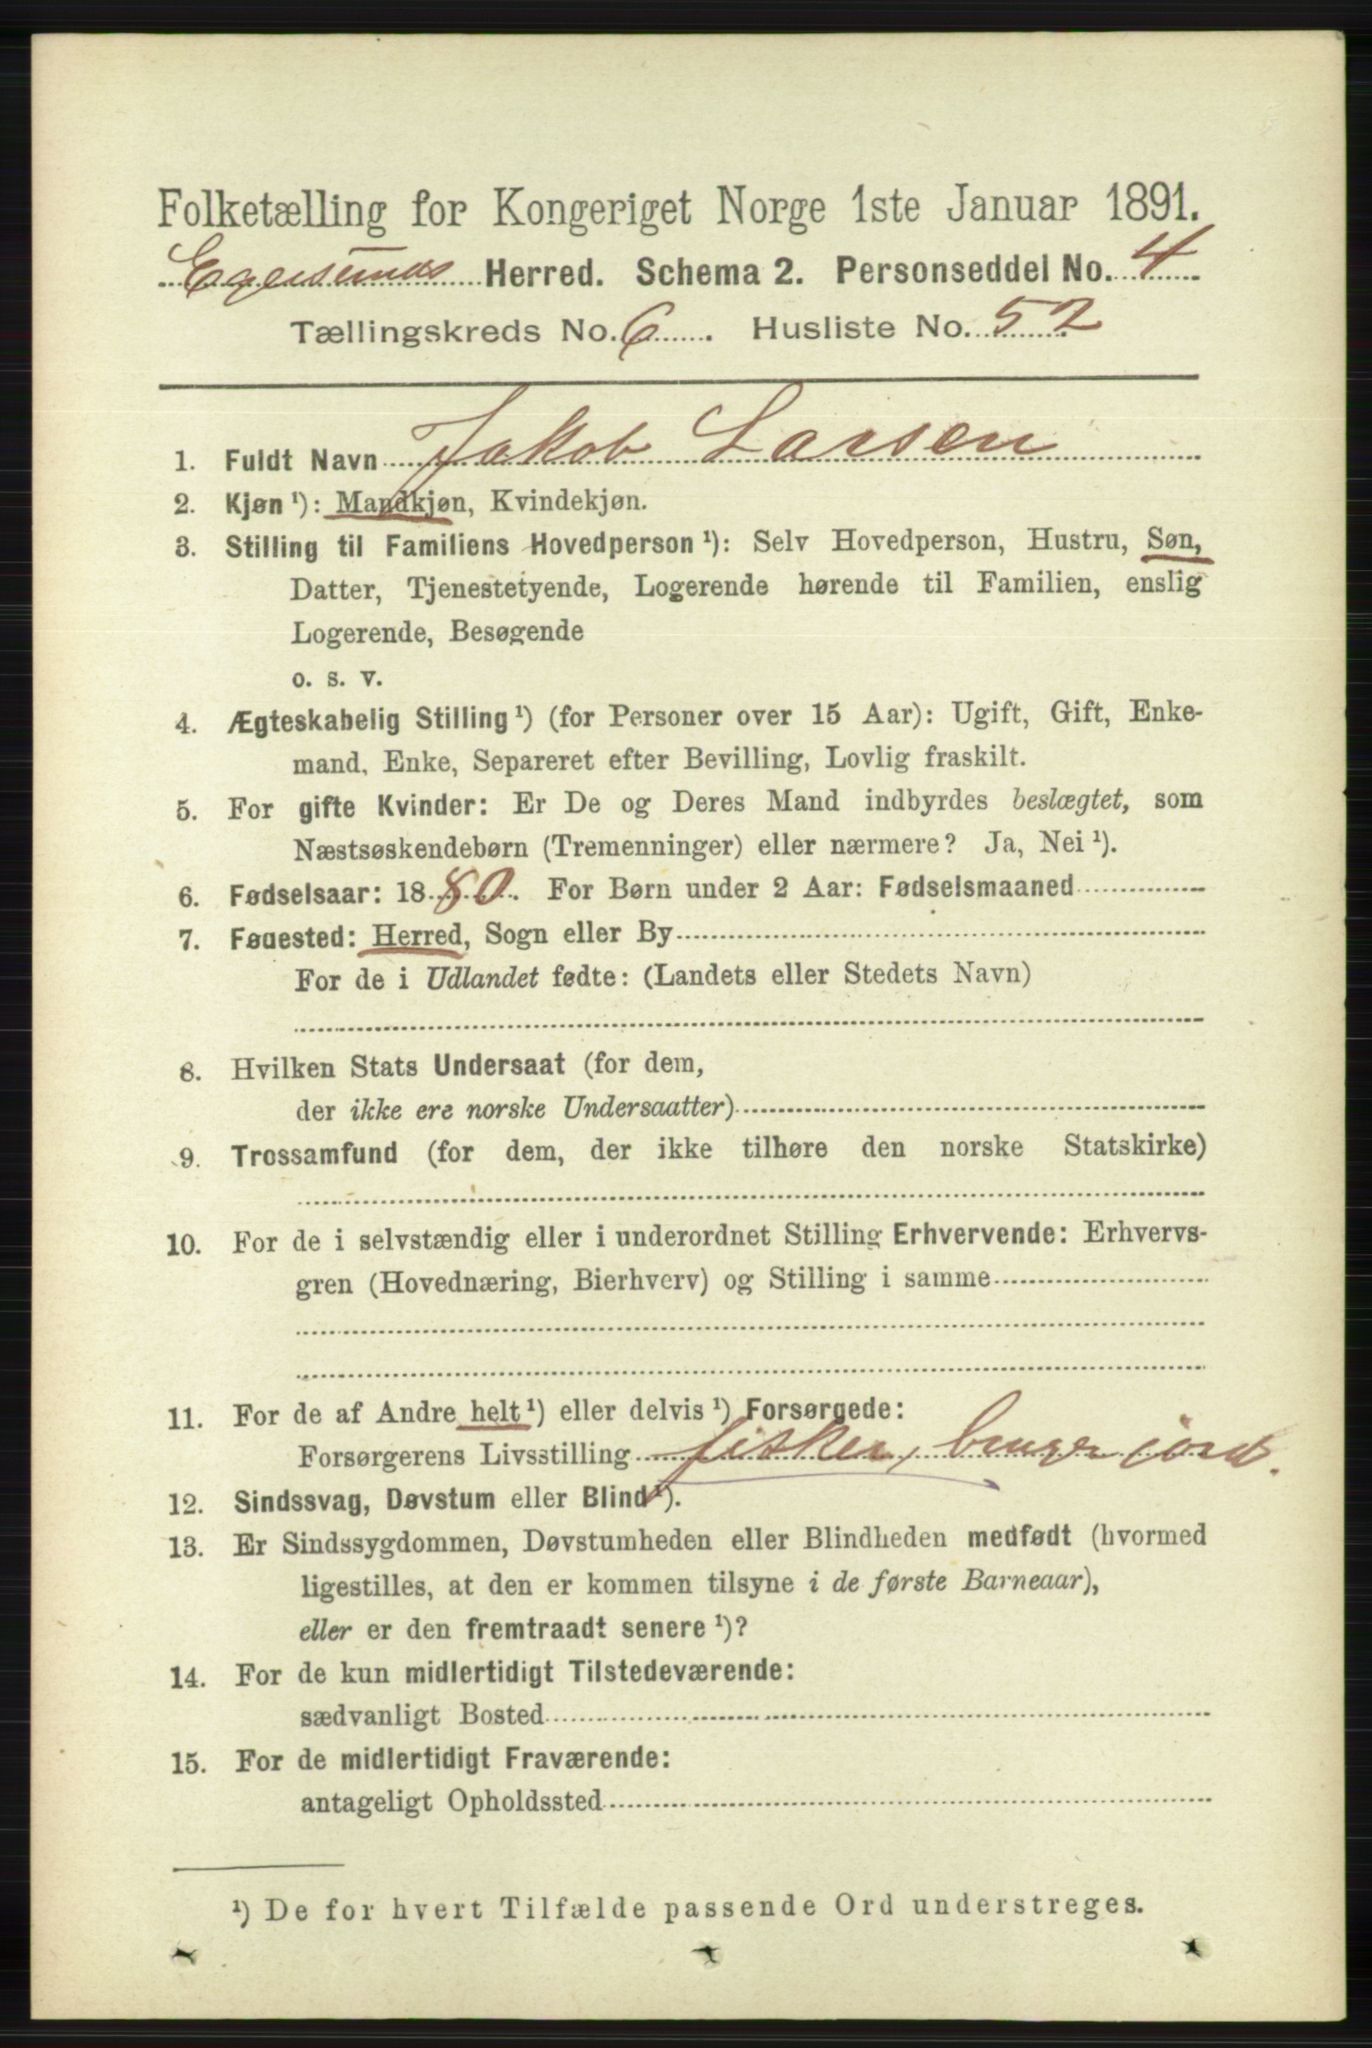 Folketælling for Kongeriget Norge 1ste Januar 1891.
Egersunds Herred. Schema 2. Personseddel No. 4
Tællingskreds No. 6. Husliste No. 52
1. Fuldt Navn Jakob Larsen
2. Kjøn ¹): Mandkjøn, Kvindekjøn.
3. Stilling til Familiens Hovedperson ¹): Selv Hovedperson, Hustru, Søn,
Datter, Tjenestetyende, Logerende hørende til Familien, enslig
Logerende, Besøgende
o. s. v.
4. Ægteskabelig Stilling ¹) (for Personer over 15 Aar): Ugift, Gift, Enke-
mand, Enke, Separeret efter Bevilling, Lovlig fraskilt.
5. For gifte Kvinder: Er De og Deres Mand indbyrdes beslægtet, som
Næstsøskendebørn (Tremenninger) eller nærmere? Ja, Nei ¹).
6. Fødselsaar: 1880. For Børn under 2 Aar: Fødselsmaaned
7. Føuested: Herred, Sogn eller By
For de i Udlandet fødte: (Landets eller Stedets Navn)
8. Hvilken Stats Undersaat (for dem,
der ikke ere norske Undersaatter)
9. Trossamfund (for dem, der ikke tilhøre den norske Statskirke)
10. For de i selvstændig eller i underordnet Stilling Erhvervende: Erhvervs-
gren (Hovednæring, Bierhverv) og Stilling i samme
11. For de af Andre helt ¹) eller delvis ¹) Forsørgede:
Forsørgerens Livsstilling fisker, bruger jord.
12. Sindssvag, Døvstum eller Blind ¹).
13. Er Sindssygdommen, Døvstumheden eller Blindheden medfødt (hvormed
ligestilles, at den er kommen tilsyne i de første Barneaar),
eller er den fremtraadt senere ¹)?
14. For de kun midlertidigt Tilstedeværende:
sædvanligt Bosted
15. For de midlertidigt Fraværende:
antageligt Opholdssted
¹) De for hvert Tilfælde passende Ord understreges.